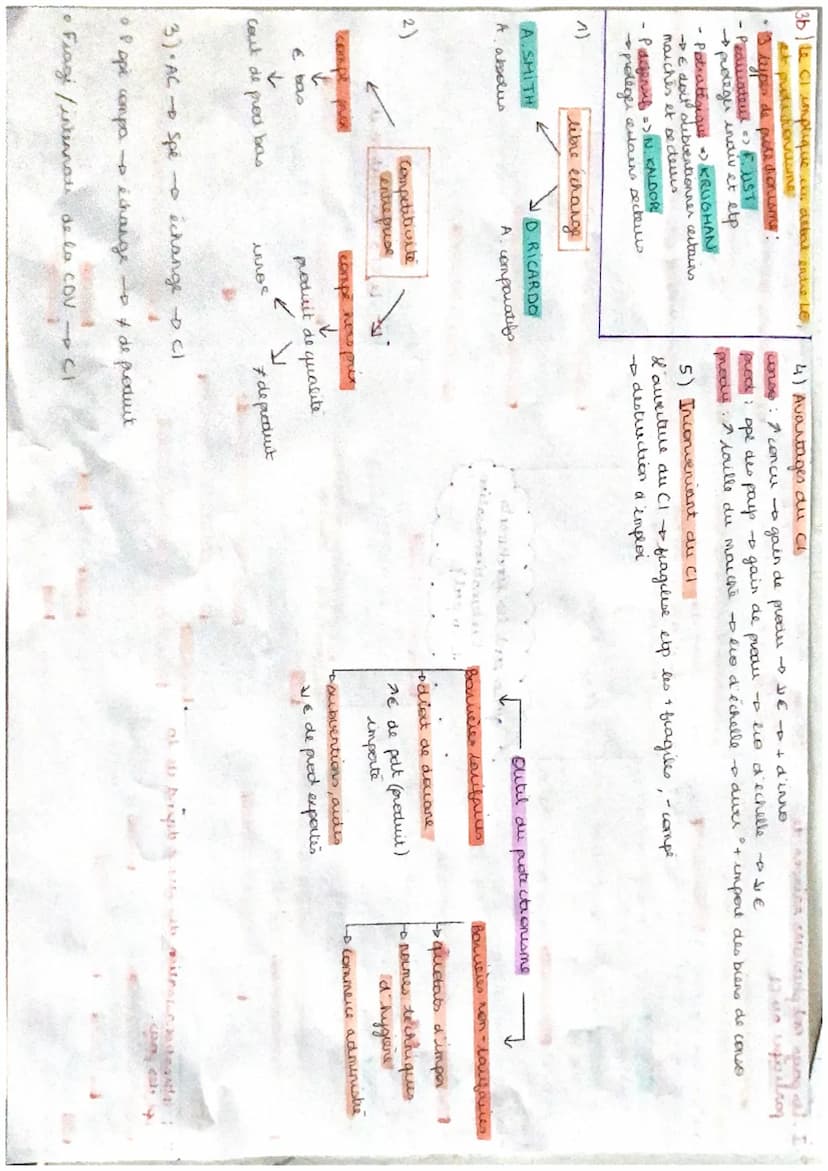 3b) Le CI implique un débat entre LE,
et protectionnisme
• 3 types de protectionnisme :
- P éducateur => F. LIST
→ protéger indiv et etp
- P stratégique => KRUGMAN
→ € doit subventionner certains
marchés et secteurs
- P défensif => N. KALDOR
→ protège certains secteurs
1) libre échange
A. SMITH
A. absolus
D. RICARDO
A. comparatifs
2) Compétitivité
entreprise
compé prix
€ bas
cout de prod bas
compé hors prix
produit de qualité
inno
≠ de produit
3) • AC → spé → échange → CI
• P spé compa → échange → ≠ de produit
• Fragi/internati de la CDV → CI
4) Avantages du CI
conso : ↗ concu → gain de produ → ↘ € → + d'inno
prod : spé des pays → gain de produ → éco d'échelle → ↘ €
produ : ↗ taille du marché → éco d'échelle → diversi° + import des biens de conso
5) Inconvéniant du CI
L'ouverture du CI → fragilise etp les + fragiles, - compé
→ destruction d'emploi
Outil du protectionnisme
Barrières tarifaires
→ droit de douane
↗ € de pdt (produit)
importé
→ subventions, aides
↘ € de prod exportés
Barrières non-tarifaires
→ quotats d'impor
→ normes techniques
d'hygiène
→ commerce administré